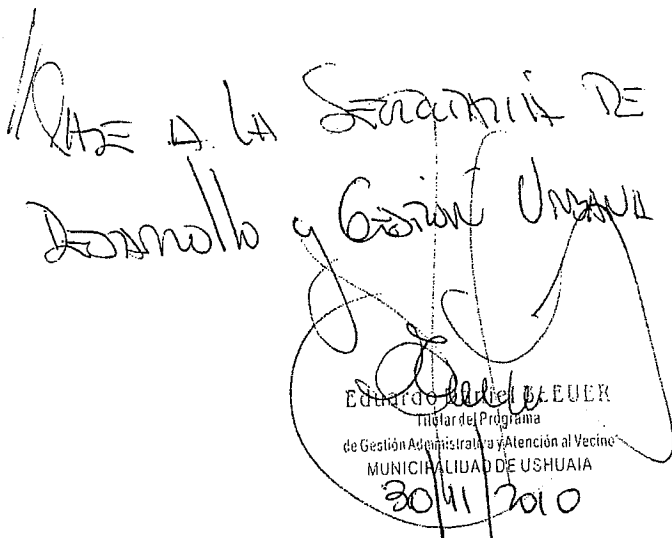 //PASE A LA SECRETARIA DE
DESARROLLO y GESTION URBANA
Eduardo BLEUER
Titular del Programa
de Gestión Administrativa y Atención al Vecino
MUNICIPALIDAD DE USHUAIA
30/11/2010